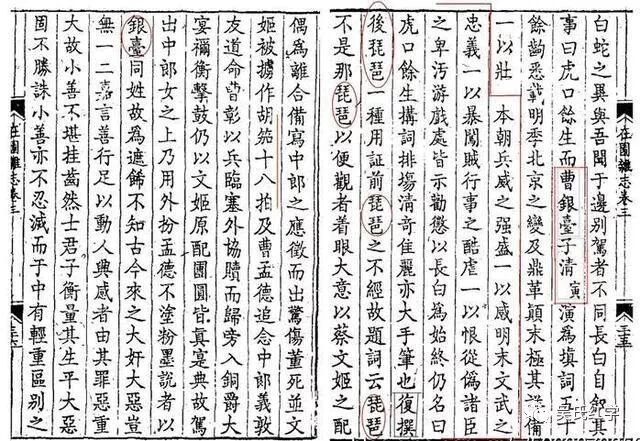 在園雜志卷三
白蛇之異與吾聞于邊别駕者不同長白自叙其
事曰虎口餘生而曹銀臺子清寅演為填詞五十
餘齣悉載明季北京之變及鼎革顛末極其詳備
一以壯 本朝兵威之强盛一以感明末文武之
忠義一以暴闖賊行事之酷虐一以恨從偽諸臣
之卑汚游戲處皆示勸懲以長白為始終仍名曰
虎口餘生搆詞排塲清奇佳麗亦大手筆也復撰
後琵琶一種用証前琵琶之不經故題詞云琵琶
不是那琵琶以便觀者着眼大意以蔡文姬之配
偶為離合備寫中郎之應徵而出驚傷董死並文
姬被擄作胡笳十八拍及曹孟德追念中郎義敦
友道命曹彰以兵臨塞外脇贖而歸旁入銅爵大
宴禰衡擊鼓仍以文姬原配團圓皆真寔典故駕
出中郎女之上乃用外扮孟德不塗粉墨説者以
銀臺同姓故為遮飾不知古今來之大奸大惡豈
無一二嘉言善行足以動人興感者由其罪惡重
大故小善不堪挂齒然士君子衡量其生平大惡
固不勝誅小善亦不忍滅而于中有輕重區别之
在園雜志卷三